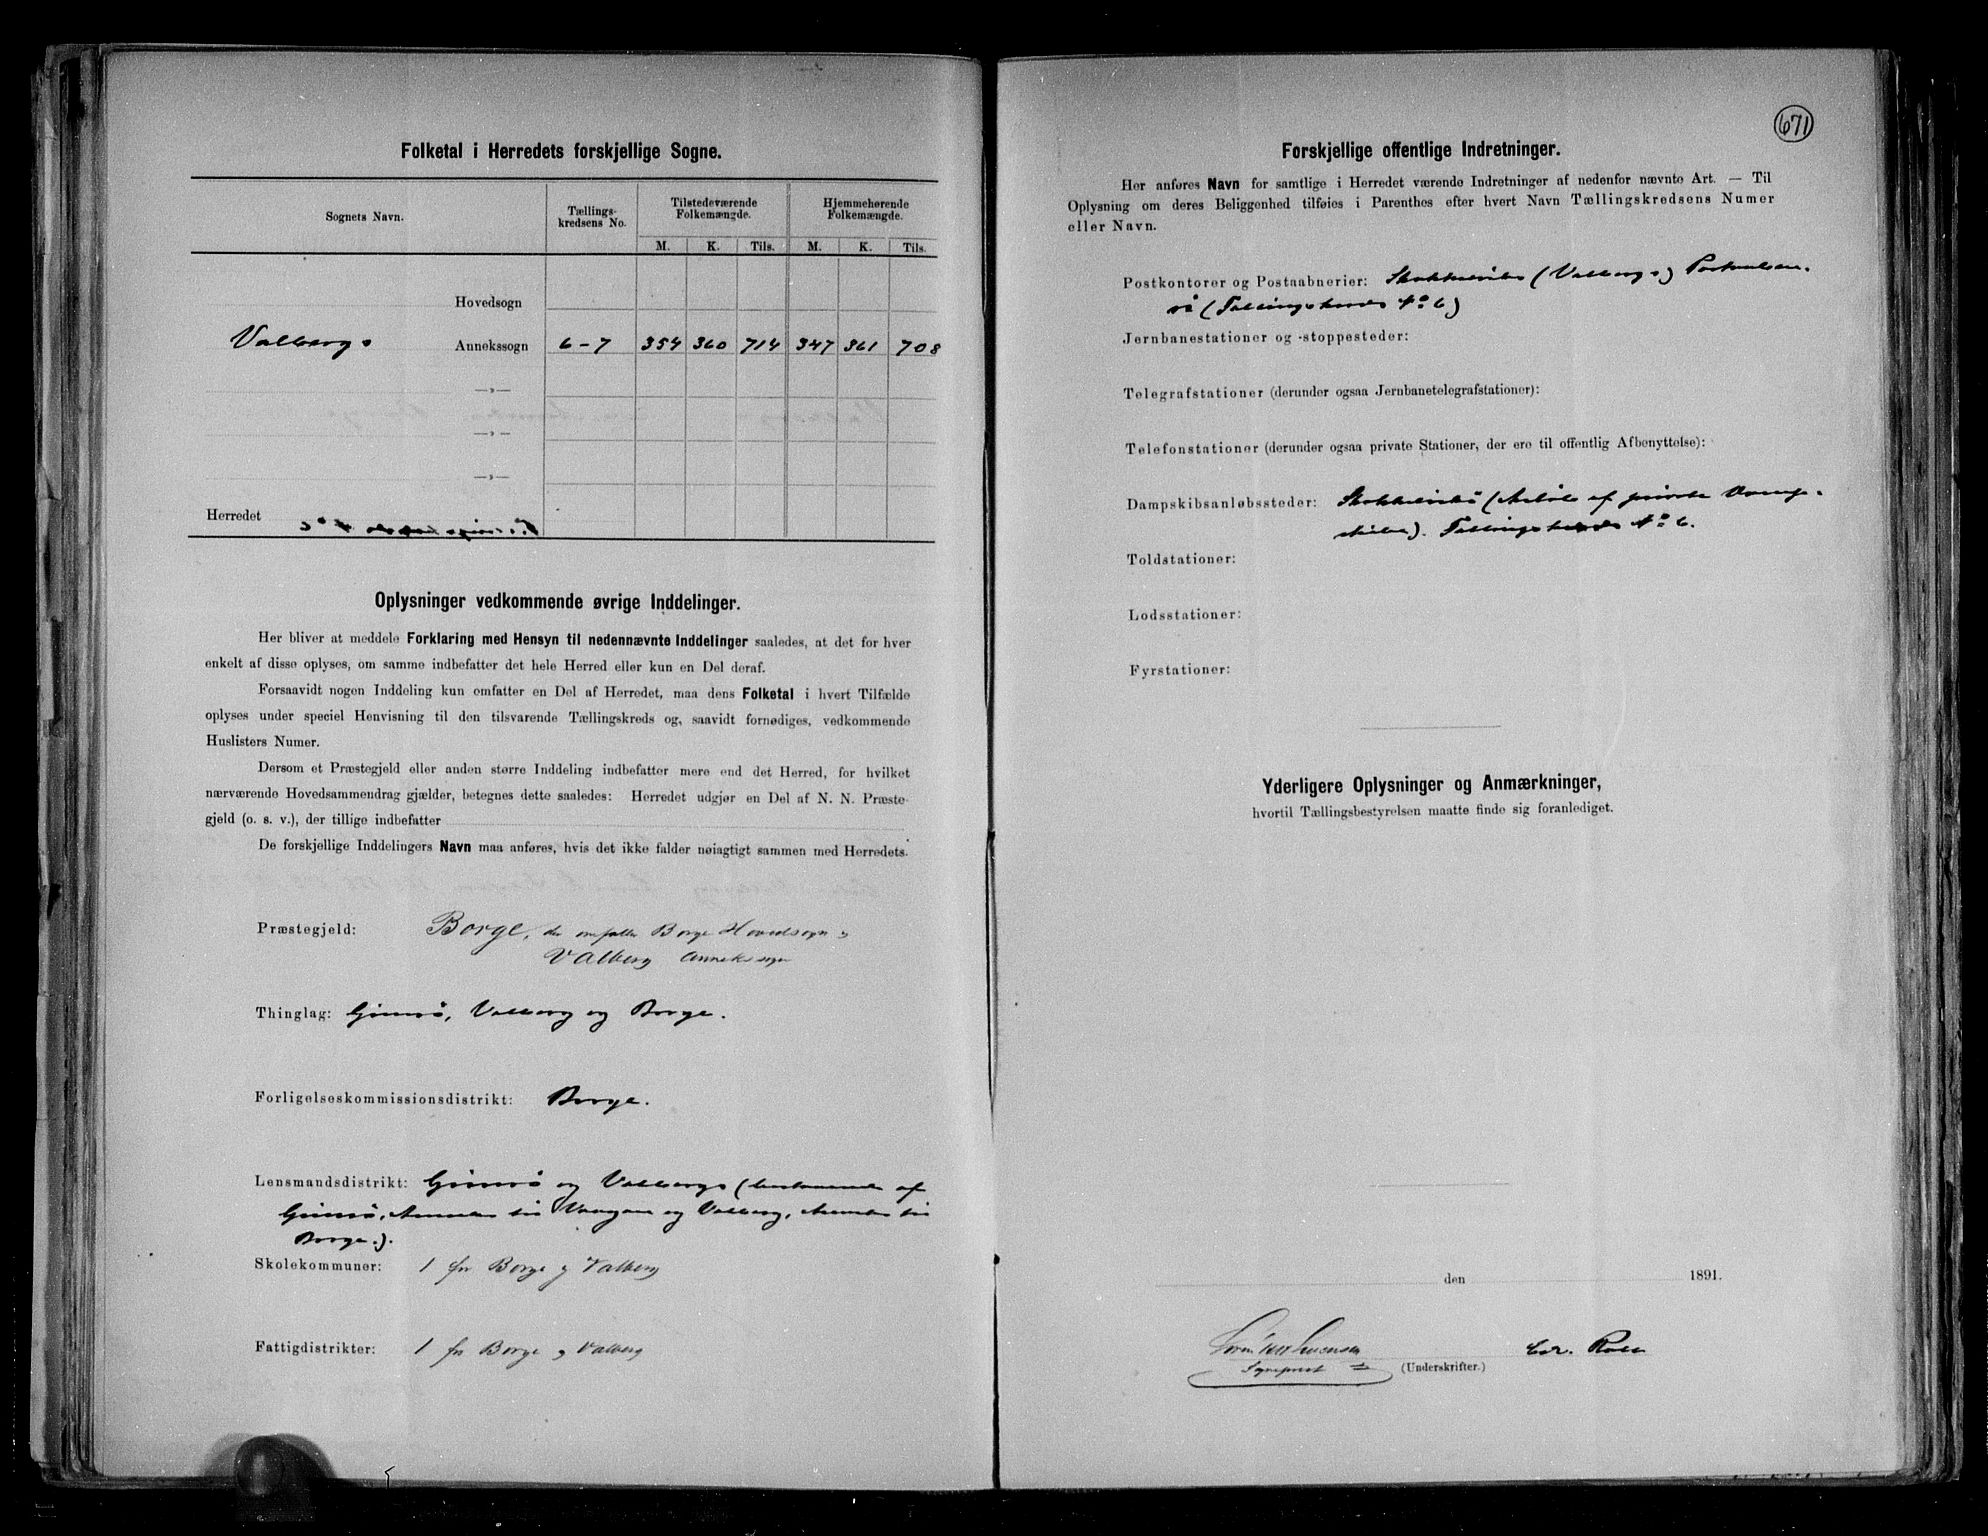 Folketal i Herredets forskjellige Sogne.
Sognets Navn.
Tællings-
kredsens No.
Tilstedeværende
Folkemængde.
Hjemmehørende
Folkemængde.
M. K. Tils. M. K. Tils.
Hovedsogn
Valbergs Annekssogn 6-7 354 360 714 347 361 708
—„—
—„—
—„—
Herredet
Oplysninger vedkommende øvrige Inddelinger.
Her bliver at meddele Forklaring med Hensyn til nedennævnte Inddelinger saaledes, at det for hver
enkelt af disse oplyses, om samme indbefatter det hele Herred eller kun en Del deraf.
Forsaavidt nogen Inddeling kun omfatter en Del af Herredet, maa dens Folketal i hvert Tilfælde
oplyses under speciel Henvisning til den tilsvarende Tællingskreds og, saavidt fornødiges, vedkommende
Huslisters Numer.
Dersom et Præstegjeld eller anden større Inddeling indbefatter mere end det Herred, for hvilket
nærværende Hovedsammendrag gjælder, betegnes dette saaledes: Herredet udgjør en Del af N. N. Præste-
gjeld (o. s. v.), der tillige indbefatter
De forskjellige Inddelingers Navn maa anføres, hvis det ikke falder nøiagtigt sammen med Herredets.
Præstegjeld: Borge, der omfatter Borge Hovedsogn og
Valberg Annekssogn
Thinglag: Gimsø, Valberg og Borge.
Forligelseskommissionsdistrikt: Borge.
Lensmandsdistrikt: Gimsø og Valbergs (bestaaende af
Gimsø, Anneks til Vaagan og Valberg, Anneks til
Borge.).
Skolekommuner: 1 for Borge og Valberg
Fattigdistrikter: 1 for Borge og Valberg
671
Forskjellige offentlige Indretninger.
Her anføres Navn for samtlige i Herredet værende Indretninger af nedenfor nævnte Art. — Til
Oplysning om deres Beliggenhed tilføies i Parenthes efter hvert Navn Tællingskredsens Numer
eller Navn.
Postkontorer og Postaabnerier: (Valbergs)
(Tællingskreds No 6)
Jernbanestationer og -stoppesteder:
Telegrafstationer (derunder ogsaa Jernbanetelegrafstationer):
Telefonstationer (derunder ogsaa private Stationer, der ere til offentlig Afbenyttelse):
Dampskibsanløbssteder: (Anløb af private
Tællingskreds No 6.
Toldstationer:
Lodsstationer:
Fyrstationer:
Yderligere Oplysninger og Anmærkninger,
hvortil Tællingsbestyrelsen maatte finde sig foranlediget.
den 1891.
Sogneprest
(Underskrifter.)